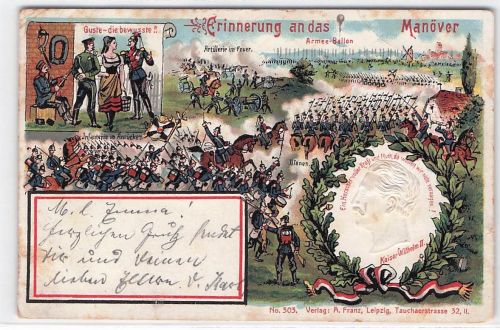 Guste - die bewusste!!
Erinnerung an das Manöver
Armee-Ballon
Artillerie im Feuer.
Infanterie im Anrücken
Ulanen
M. l. Emma!
Herzlichen Gruß sendet
dir und deinen
lieben Eltern d. Karl
Kaiser Wilhelm II.
No. 303. Verlag: A. Franz, Leipzig, Tauchaerstrasse 32, II.